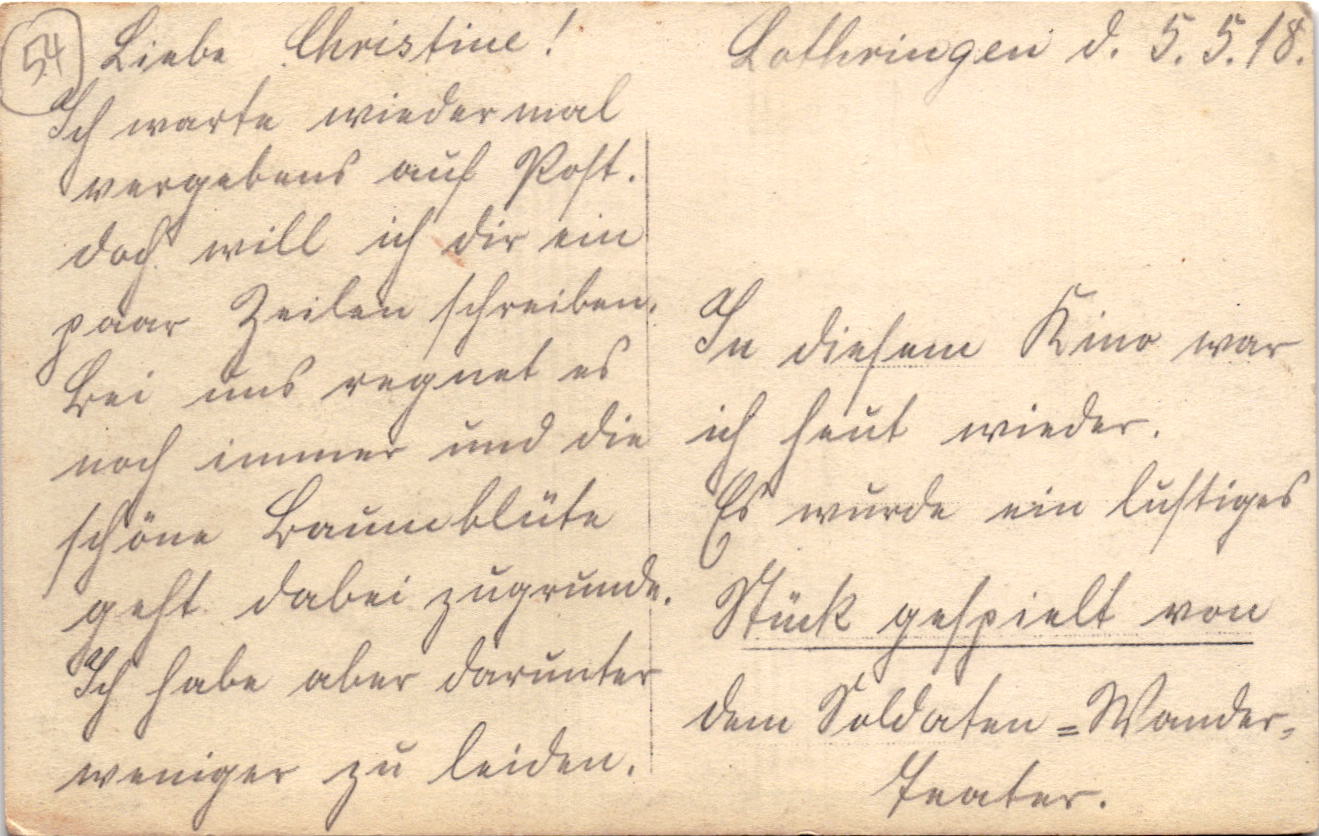 54
Liebe Christine!
Ich warte wieder mal
vergebens auf Post.
doch will ich dir ein
paar Zeilen schreiben.
Bei uns regnet es
noch immer und die
schöne Baumblüte
geht dabei zugrunde.
Ich habe aber darunter
weniger zu leiden.
Lothringen d. 5.5.18.
In diesem Kino war
ich heut wieder.
Es wurde ein lustiges
Stück gespielt von
dem Soldaten=Wander-
Teater.